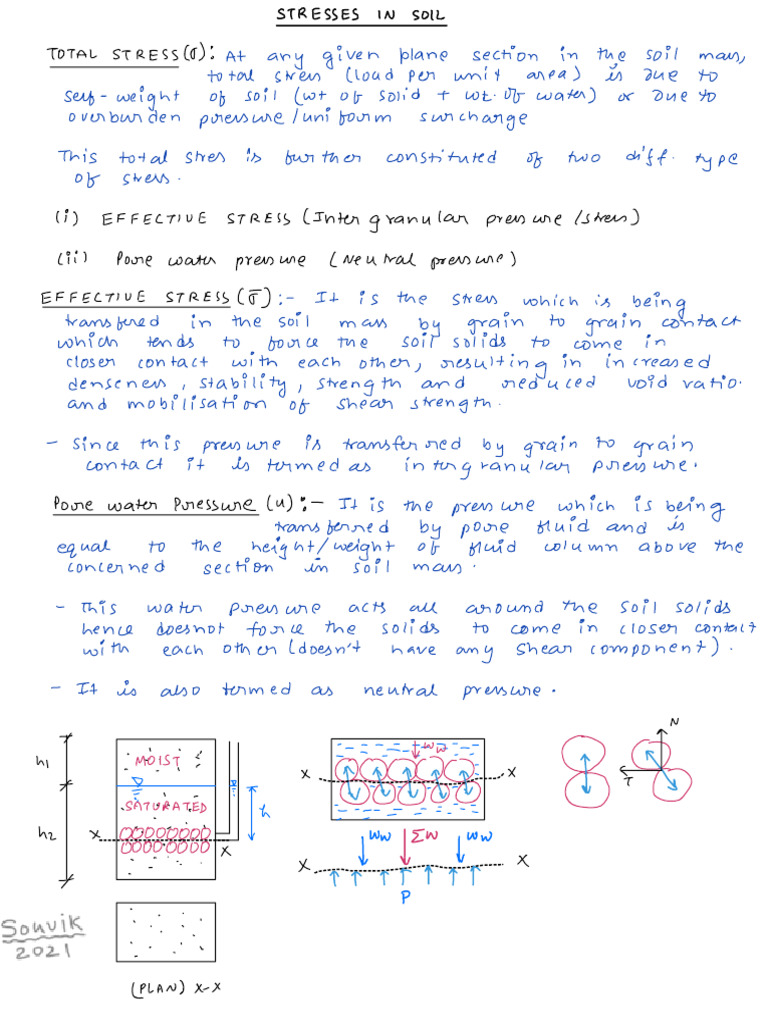 STRESSES IN SOIL
TOTAL STRESS (σ): At any given plane section in the soil mass,
total stress (load per unit area) is due to
self-weight of soil (wt of solid + wt. of water) or due to
overburden pressure/uniform surcharge
This total stres is further constituted of two diff. type
of stress.
(i) EFFECTIVE STRESS (Inter granular pressure/stress)
(ii) Pore water pressure (Neutral pressure)
EFFECTIVE STRESS (σ̄):- It is the stress which is being
transfered in the soil mass by grain to grain contact
which tends to force the soil solids to come in
closer contact with each other, resulting in increased
denseness, stability, strength and reduced void ratio.
and mobilisation of shear strength.
- Since this pressure is transferred by grain to grain
contact it is termed as intergranular pressure.
Pore water Pressure (u):- It is the pressure which is being
transferred by pore fluid and is
equal to the height/weight of fluid column above the
concerned section in soil mass.
- This water pressure acts all around the soil solids
hence doesnot force the solids to come in closer contact
with each other (doesn't have any shear component).
- It is also termed as neutral pressure.
h1
MOIST
h2
SATURATED
h
X
X
Ww
X
X
N
τ
Ww
ΣW
Ww
X
X
P
Souvik
2021
(PLAN) X-X